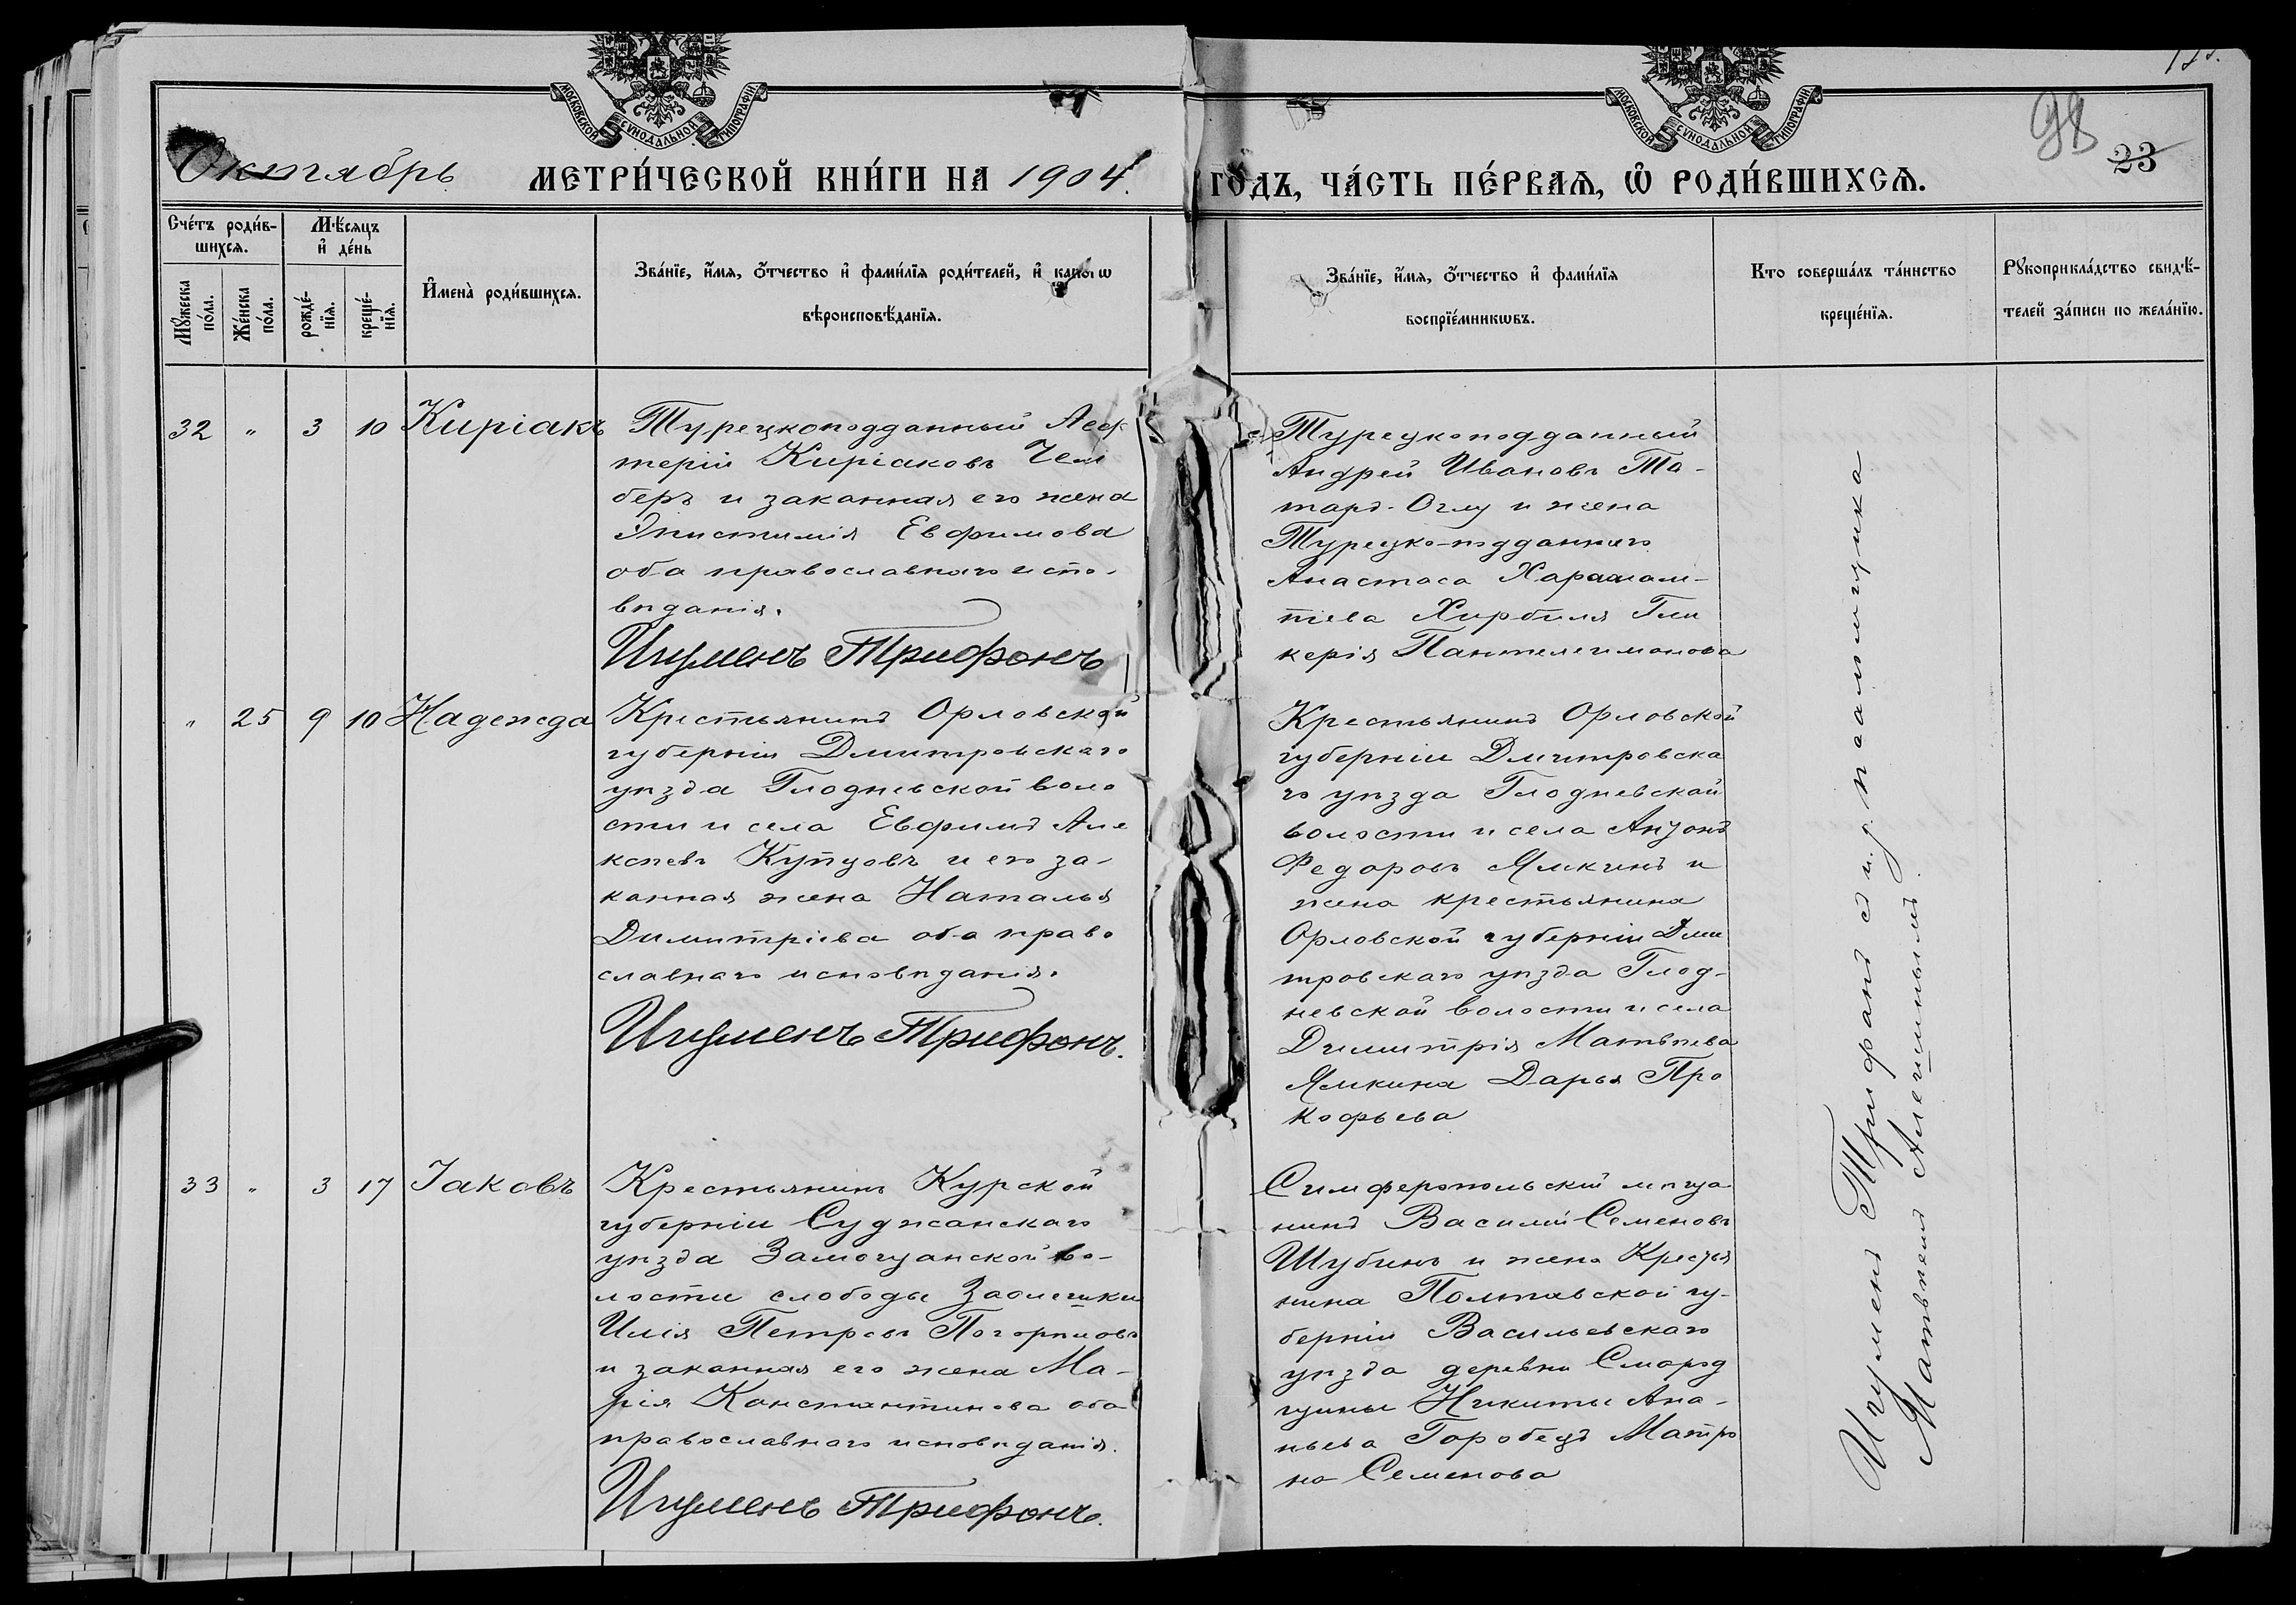 МОСКОВСКОЙ СУНОДАЛЬНОЙ ТИПОГРАФІИ
МОСКОВСКОЙ СУНОДАЛЬНОЙ ТИПОГРАФІИ
98
23
Октябрь МЕТРИ́ЧЕСКОЙ КНИ́ГИ НА 1904. ГО́ДЪ, ЧА́СТЬ ПЕ́РВАѦ, Ѡ РОДИ́ВШИХСѦ.
Сче́тъ роди́в-
шихсѧ.
Мꙋ́жеска по́ла.
Же́нска по́ла.
Мѣ́сѧцъ
и҆ де́нь
рожде́-нїѧ.
креще́-нїѧ.
И҆мена̀ роди́вшихсѧ.
Зва́нїе, и҆́мѧ, ѻ҆́тчество и҆ фами́лїѧ роди́телей, и҆ како́гѡ
вѣроисповѣ́данїѧ.
Зва́нїе, и҆́мѧ, ѻ҆́тчество и҆ фами́лїѧ
воспрїе́мникѡвъ.
Кто соверша́лъ та́инство
креще́нїѧ.
Рꙋкоприкла́дство свидѣ́-
телей за́писи по жела́нїю.
32 " 3 10 Киріакъ
Турецкоподданный Леф
терій Киріаковъ
беръ и законная его жена
Эпистимія Евфимова
оба православнаго испо-
вѣданія.
Игуменъ Трифонъ
Турецкоподданный
Андрей Ивановъ Та-
таръ-Оглу и жена
Турецко-подданнаго
Анастаса Харалам-
піева Гли
керія Пантелеимонова
" 25 9 10 Надежда
Крестьянинъ Орловской
губерніи Дмитровскаго
уѣзда Глодневской воло
сти и села Евфимъ Але
ксѣевъ Купцовъ и его за-
конная жена Наталья
Димитріева оба право
славнаго исповѣданія.
Игуменъ Трифонъ.
Крестьянинъ Орловской
губерніи Дмитровска
го уѣзда Глодневской
волости и села
Федоровъ Ямкинъ и
жена крестьянина
Орловской губерніи Дми
тровскаго уѣзда Глод-
невской волости и села
Димитрія Матвѣева
Ямкина Дарья Про
кофьева
33 " 3 17 Іаковъ
Крестьянинъ Курской
губерніи Суджанскаго
уѣзда Замостянской во-
лости слободы
Илія Петровъ Погорѣловъ
и законная его жена Ма-
рія Константинова оба
православнаго исповѣданія.
Игуменъ Трифонъ.
Симферопольскій мѣща
нинъ Василій Семеновъ
Шубинъ и жена Крестья
нина Полтавской гу-
берніи Васильевскаго
уѣзда деревни Смород
щины Никиты Ана-
ньева Горобецъ Матро
на Семенова
Игуменъ Трифонъ съ и. д. псаломщика
Матвѣемъ